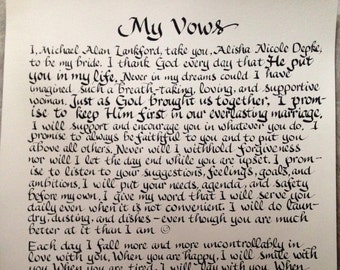 My Vows
I, Michael Alan Lankford, take you, Alisha Nicole Depke,
to be my bride. I thank God every day that He put
you in my life. Never in my dreams could I have
imagined such a breath-taking, loving, and supportive
woman. Just as God brought us together, I prom-
ise to keep Him first in our everlasting marriage.
I will support and encourage you in whatever you do. I
promise to always be faithful to you and to put you
above all others. Never will I withhold forgiveness
nor will I let the day end while you are upset. I prom-
ise to listen to your suggestions, feelings, goals, and
ambitions. I will put your needs, agenda, and safety
before my own. I give my word that I will serve you
daily even when it is not convenient. I will do laun-
dry, dusting, and dishes - even though you are much
better at it than I am ☺
Each day I fall more and more uncontrollably in
love with you. When you are happy, I will smile with
you. When you are tired, I will lay with you. When